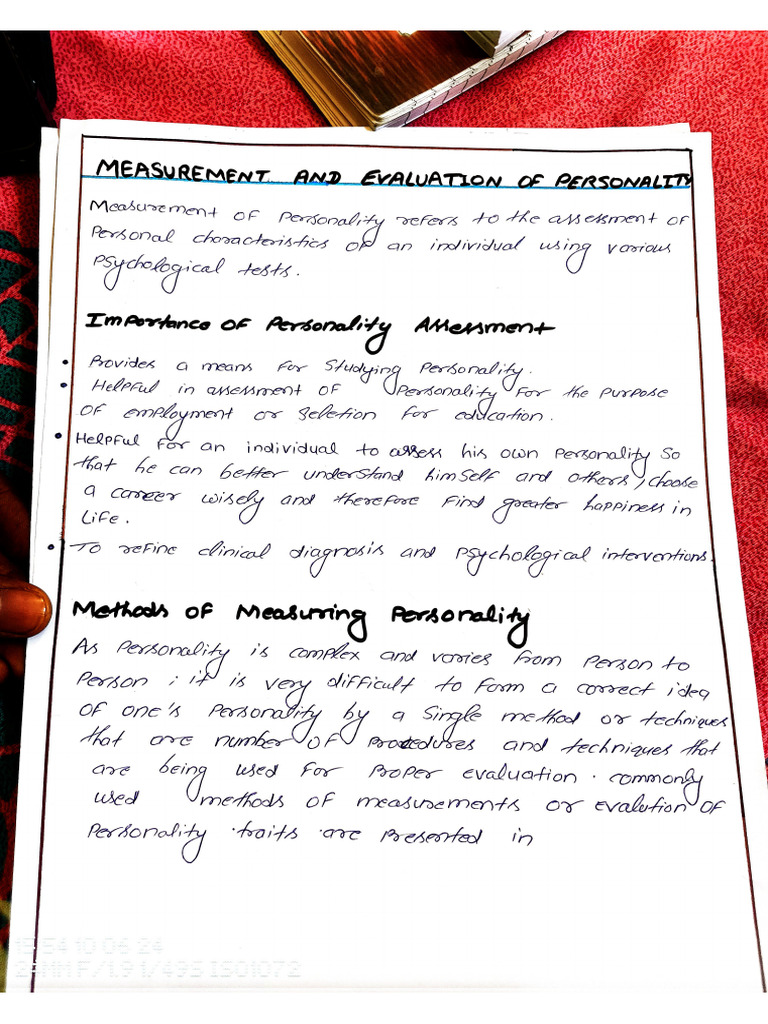 MEASUREMENT AND EVALUATION OF PERSONALITY
Measurement of personality refers to the assessment of
Personal characteristics of an individual using various
Psychological tests.
Importance of Personality Assessment
• Provides a means for studying Personality.
• Helpful in assessment of Personality for the purpose
of employment or seletion for education.
• Helpful for an individual to assess his own Personality so
that he can better understand himself and others, choose
a career wisely and therefore find greater happiness in
life.
• To refine clinical diagnosis and psychological interventions.
Methods of Measuring Personality
As Personality is complex and varies from Person to
Person ; it is very difficult to form a correct idea
of one's Personality by a single method or techniques
that are number of Procedures and techniques that
are being used for proper evaluation. commonly
used methods of measurements or evalution of
Personality .traits .are presented in
15:54 10 06 24
24MM F/1.91/49S ISO1072